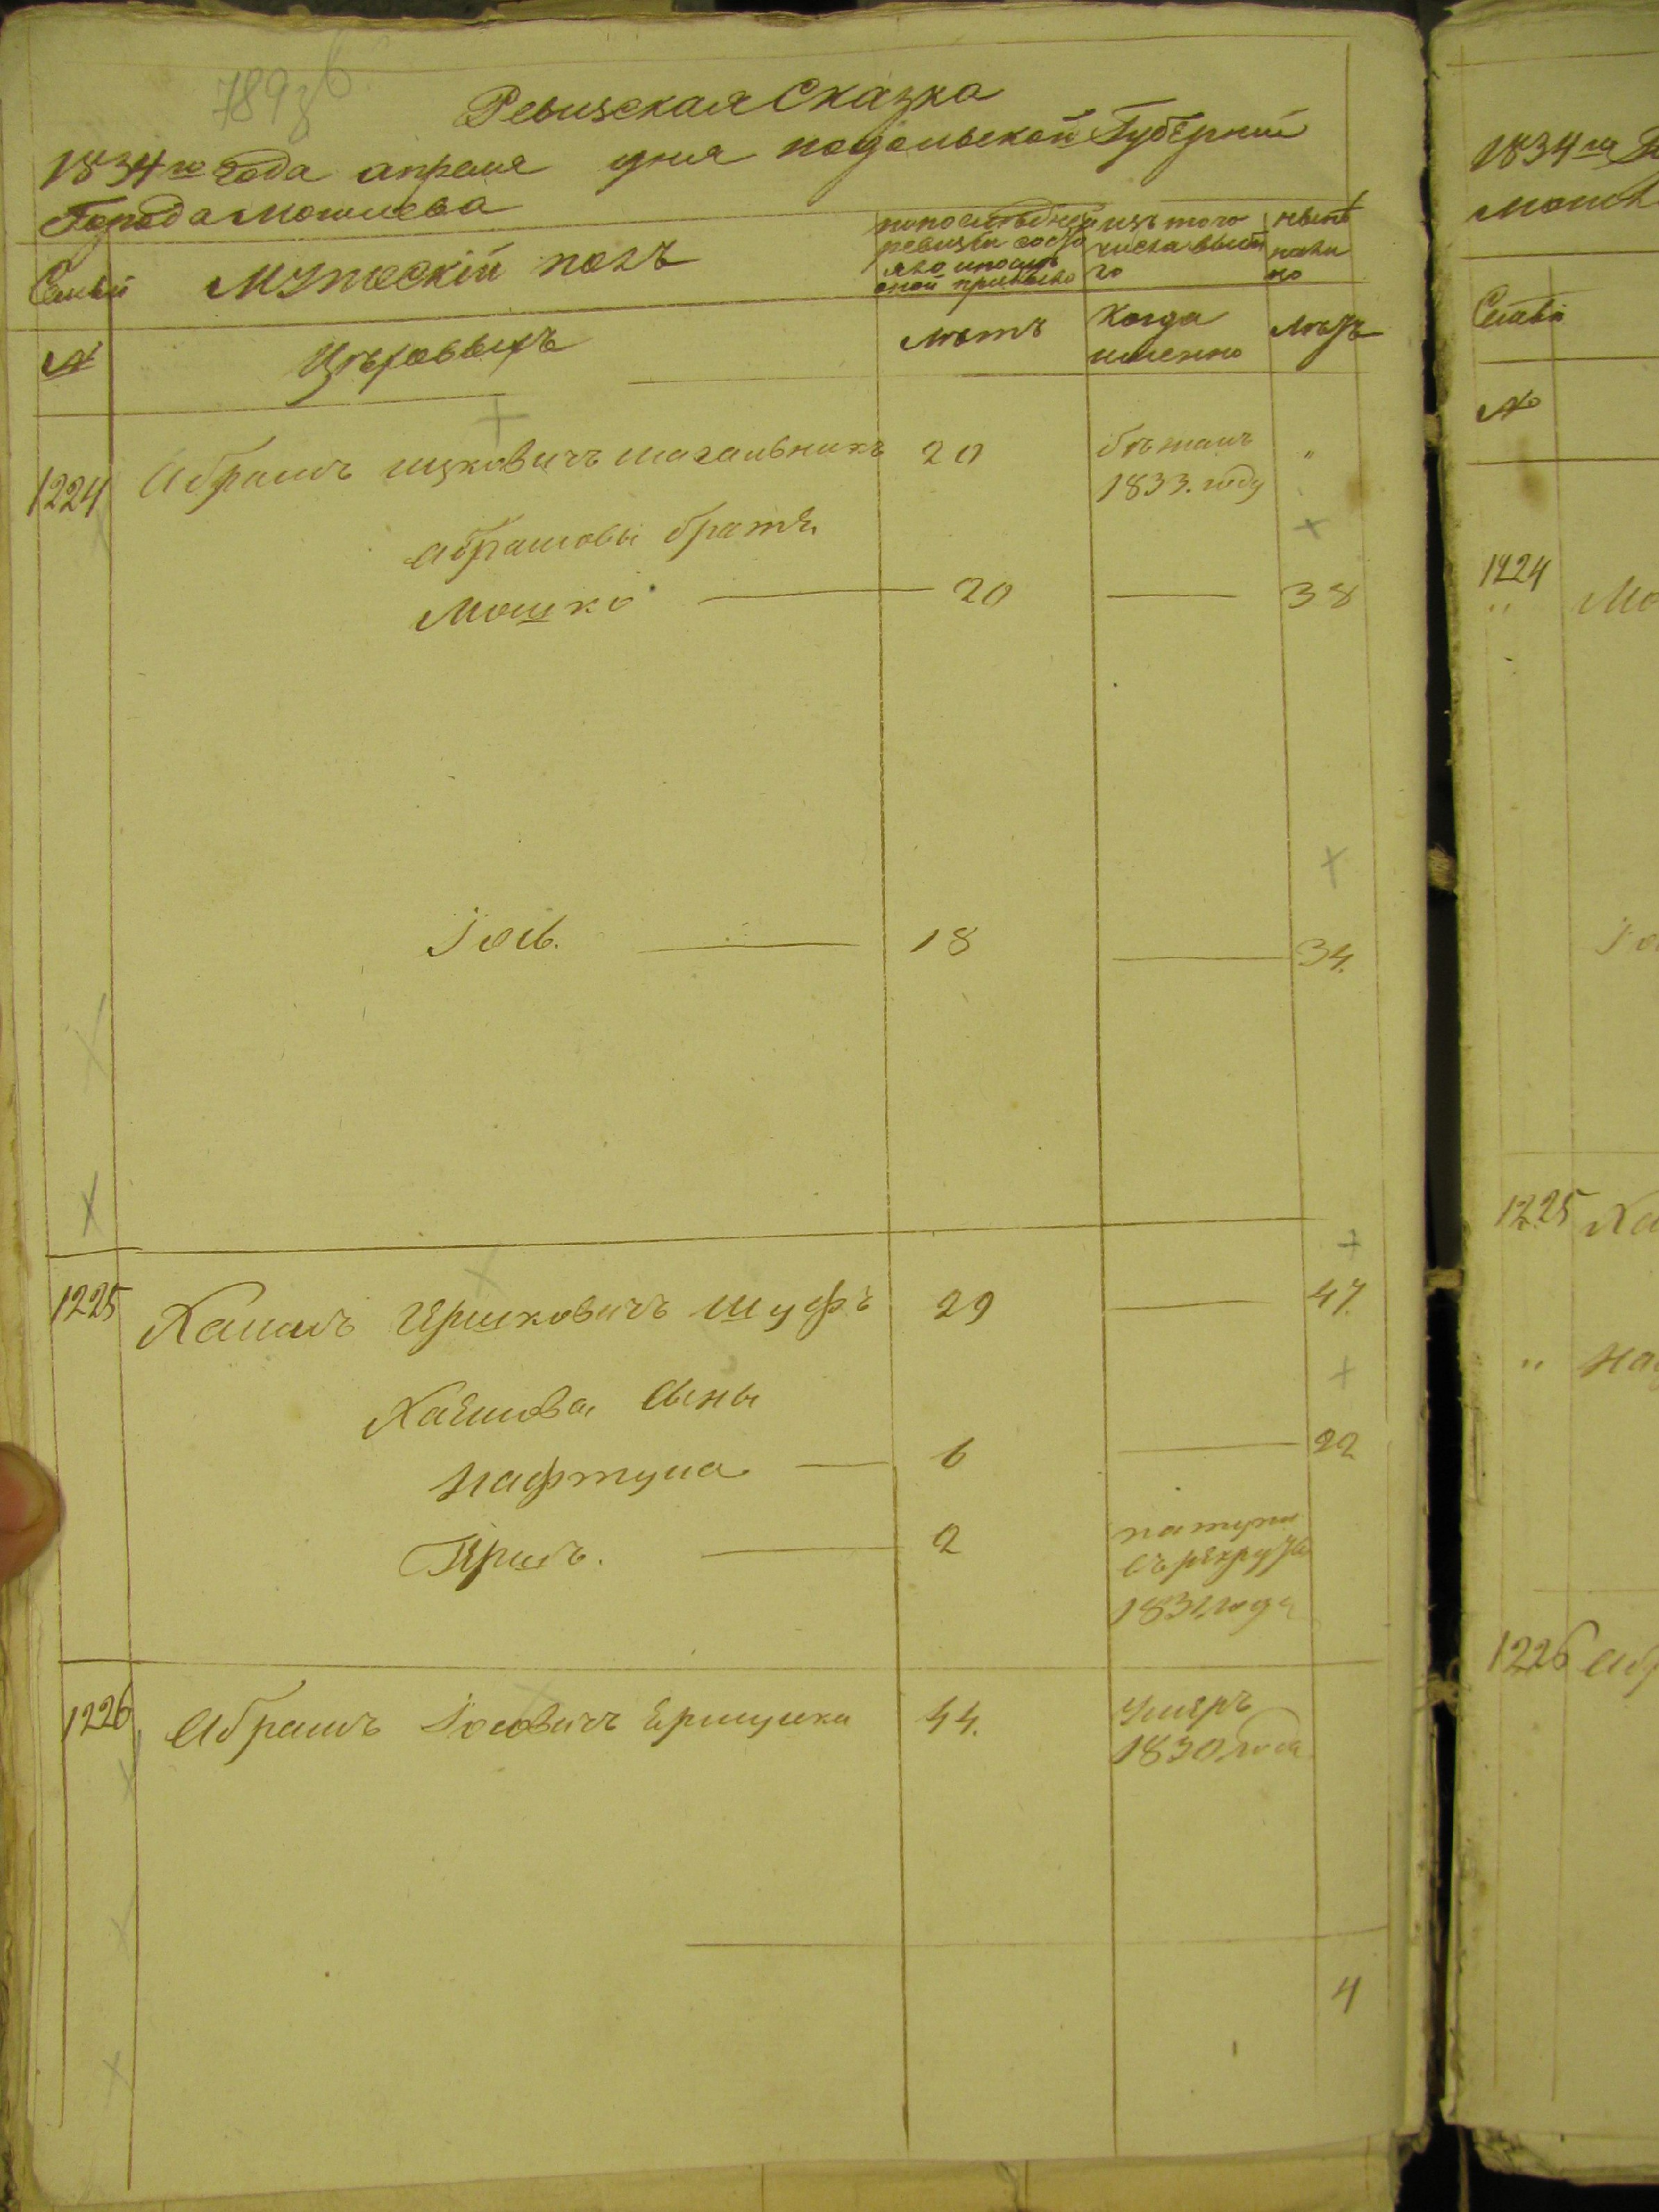 789 об
Ревизская Сказка
1834го года апреля дня подольской Губернии
Города Могилева
Семьи
Мужескій полъ
по последней ревизіи состояло и после оной прибыло
изъ того числа выбыло
ныне налицо
№
Цеховыхъ
Летъ
Когда именно
Летъ
1224 Абрамъ Ицковичъ 20 бежалъ "
1833. году
Абрамовы братья
Мошко 20 38
Іось. 18 34.
1225 Хаимъ Гершковичъ Шуфъ 29 47.
Хаимова сыны
Нафтула 6 22
Гершъ. 2
1831 года
1226 Абрамъ Іосовичъ 44. умеръ
1830 года
4
1834го
Семьи
№
1224
"
1225
"
1226